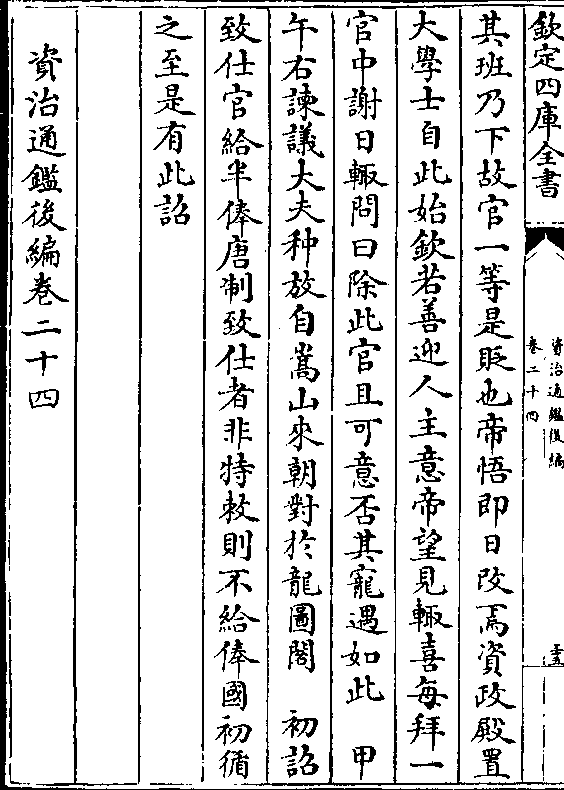 欽定四庫全書
資治通鑑後編
卷二十四
其班乃下故官一等是貶也帝悟即日改焉資政殿置
大學士自此始欽若善迎人主意帝望見輒喜每拜一
官中謝日輒問曰除此官且可意否其寵遇如此　甲
午右諫議大夫种放自嵩山來朝對於龍圖閣　初詔
致仕官給半俸唐制致仕者非特敕則不給俸國初循
之至是有此詔
資治通鑑後編卷二十四